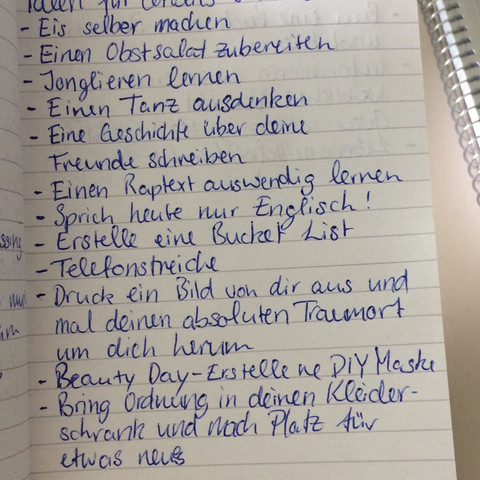 Ideen für
- Eis selber machen
- Einen Obstsalat zubereiten
- Jonglieren lernen
- Einen Tanz ausdenken
- Eine Geschichte über deine
Freunde schreiben
- Einen Raptext auswendig lernen
- Sprich heute nur Englisch!
- Erstelle eine Bucket List
- Telefonstreiche
- Druck ein Bild von dir aus und
mal deinen absoluten Traumort
um dich herum
- Beauty Day - Erstelle ne DIY Maske
- Bring Ordnung in deinen Kleider-
schrank und mach Platz für
etwas neues